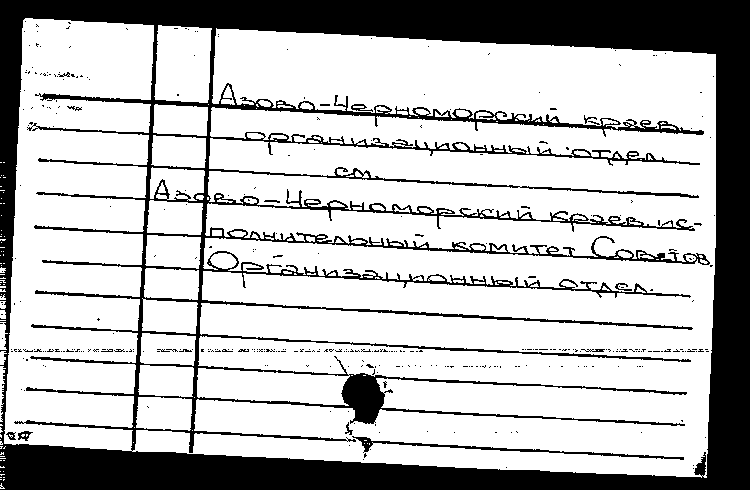 Азово-Черноморский краев.
организационный отдел.
см.
Азово-Черноморский краев. ис-
полнительный комитет Советов.
Организационный отдел.